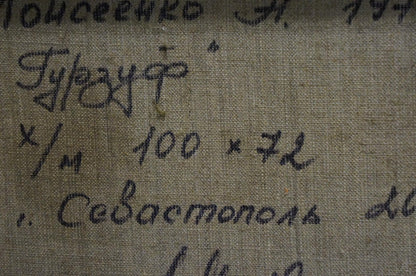 Мойсеенко А. 197
Гурзуф"
х/м 100 × 72
„ Севастополь 26